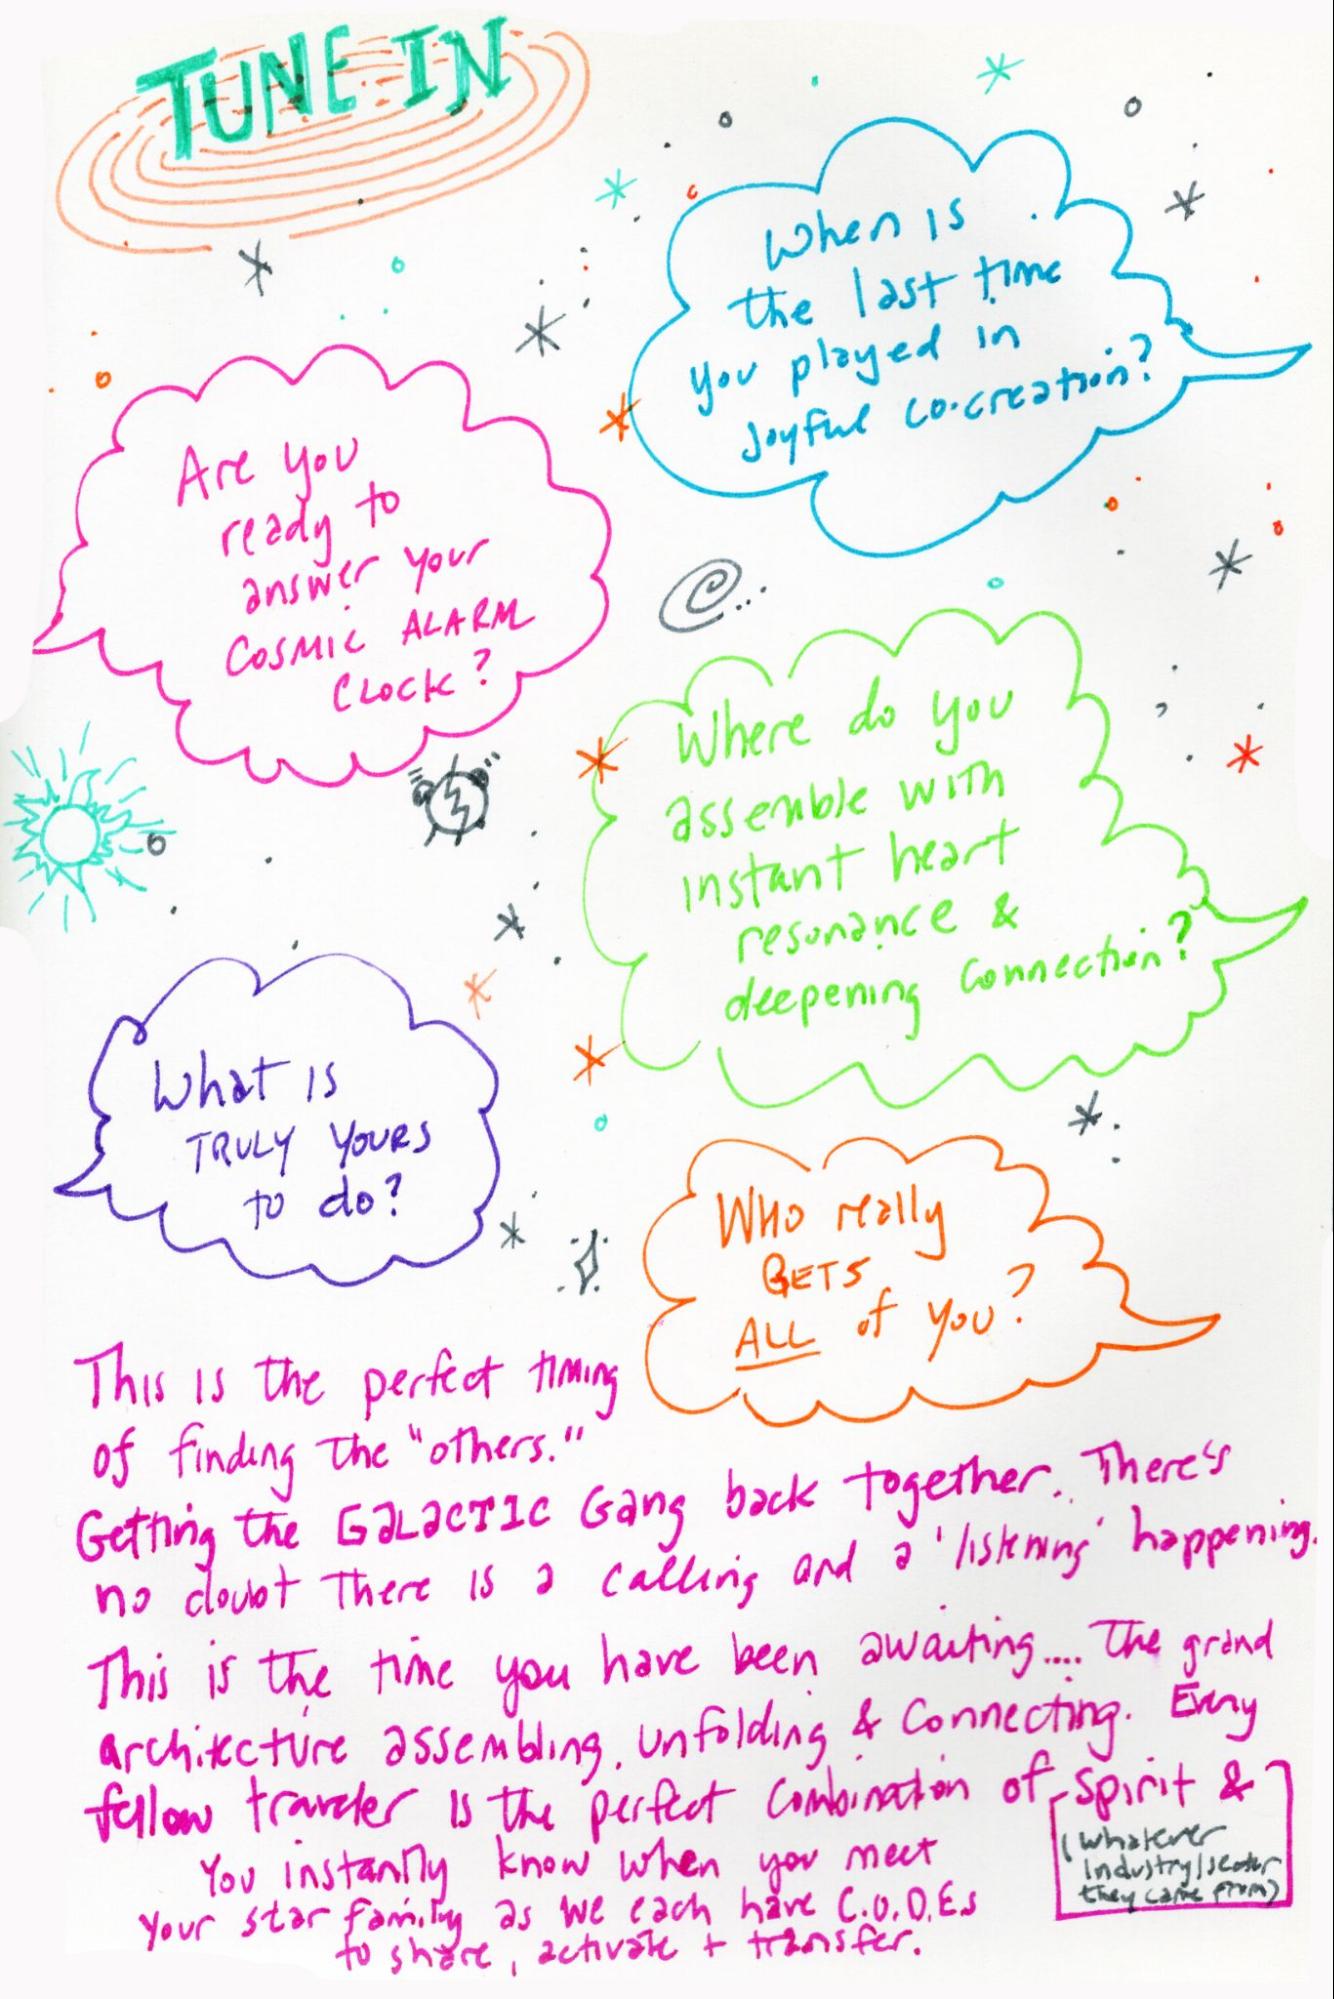 TUNE IN
When is
the last time
you played in
Joyful co-creation?
Are you
ready to
answer your
COSMIC ALARM
CLOCK?
Where do you
assemble with
instant heart
resonance &
deepening connection?
What is
TRULY YOURS
to do?
WHO really
GETS
ALL of YOU?
This is the perfect timing
of finding the "others."
Getting the GALACTIC Gang back together. There's
no doubt there is a calling and a 'listening' happening.
This is the time you have been awaiting.... the grand
architecture assembling, unfolding & connecting. Every
fellow traveler is the perfect combination of spirit &
(whatever
industry/sector
they came from)
You instantly know when you meet
your star family as we each have C.O.D.Es
to share, activate + transfer.